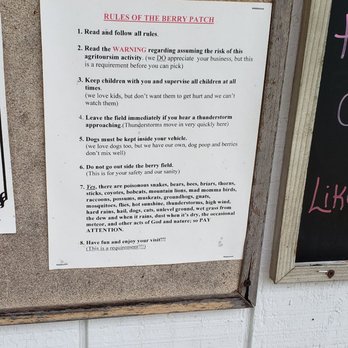 RULES OF THE BERRY PATCH
1. Read and follow all rules.
2. Read the WARNING regarding assuming the risk of this
agritourism activity. (we DO appreciate your business, but this
is a requirement before you can pick)
3. Keep children with you and supervise all children at all
times.
(we love kids, but don't want them to get hurt and we can't
watch them)
4. Leave the field immediately if you hear a thunderstorm
approaching.(Thunderstorms move in very quickly here)
5. Dogs must be kept inside your vehicle.
(we love dogs too, but we have our own, dog poop and berries
don't mix well)
6. Do not go out side the berry field.
(This is for your safety and our sanity)
7. Yes, there are poisonous snakes, bears, bees, briars, thorns,
sticks, coyotes, bobcats, mountain lions, mad momma birds,
raccoons, possums, muskrats, groundhogs, gnats,
mosquitoes, flies, hot sunshine, thunderstorms, high wind,
hard rains, hail, dogs, cats, unlevel ground, wet grass from
the dew and when it rains, dust when it's dry, the occasional
meteor, and other acts of God and nature; so PAY
ATTENTION.
8. Have fun and enjoy your visit!!!
(This is a requirement!!!)
Lik